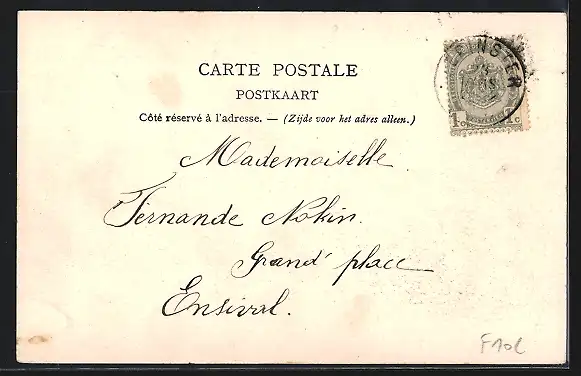 PEPINSTER
1c 1c
CARTE POSTALE
POSTKAART
Côté réservé à l'adresse. — (Zijde voor het adres alleen.)
Mademoiselle
Fernande Nokin.
Grand' place
Ensival.
F10c